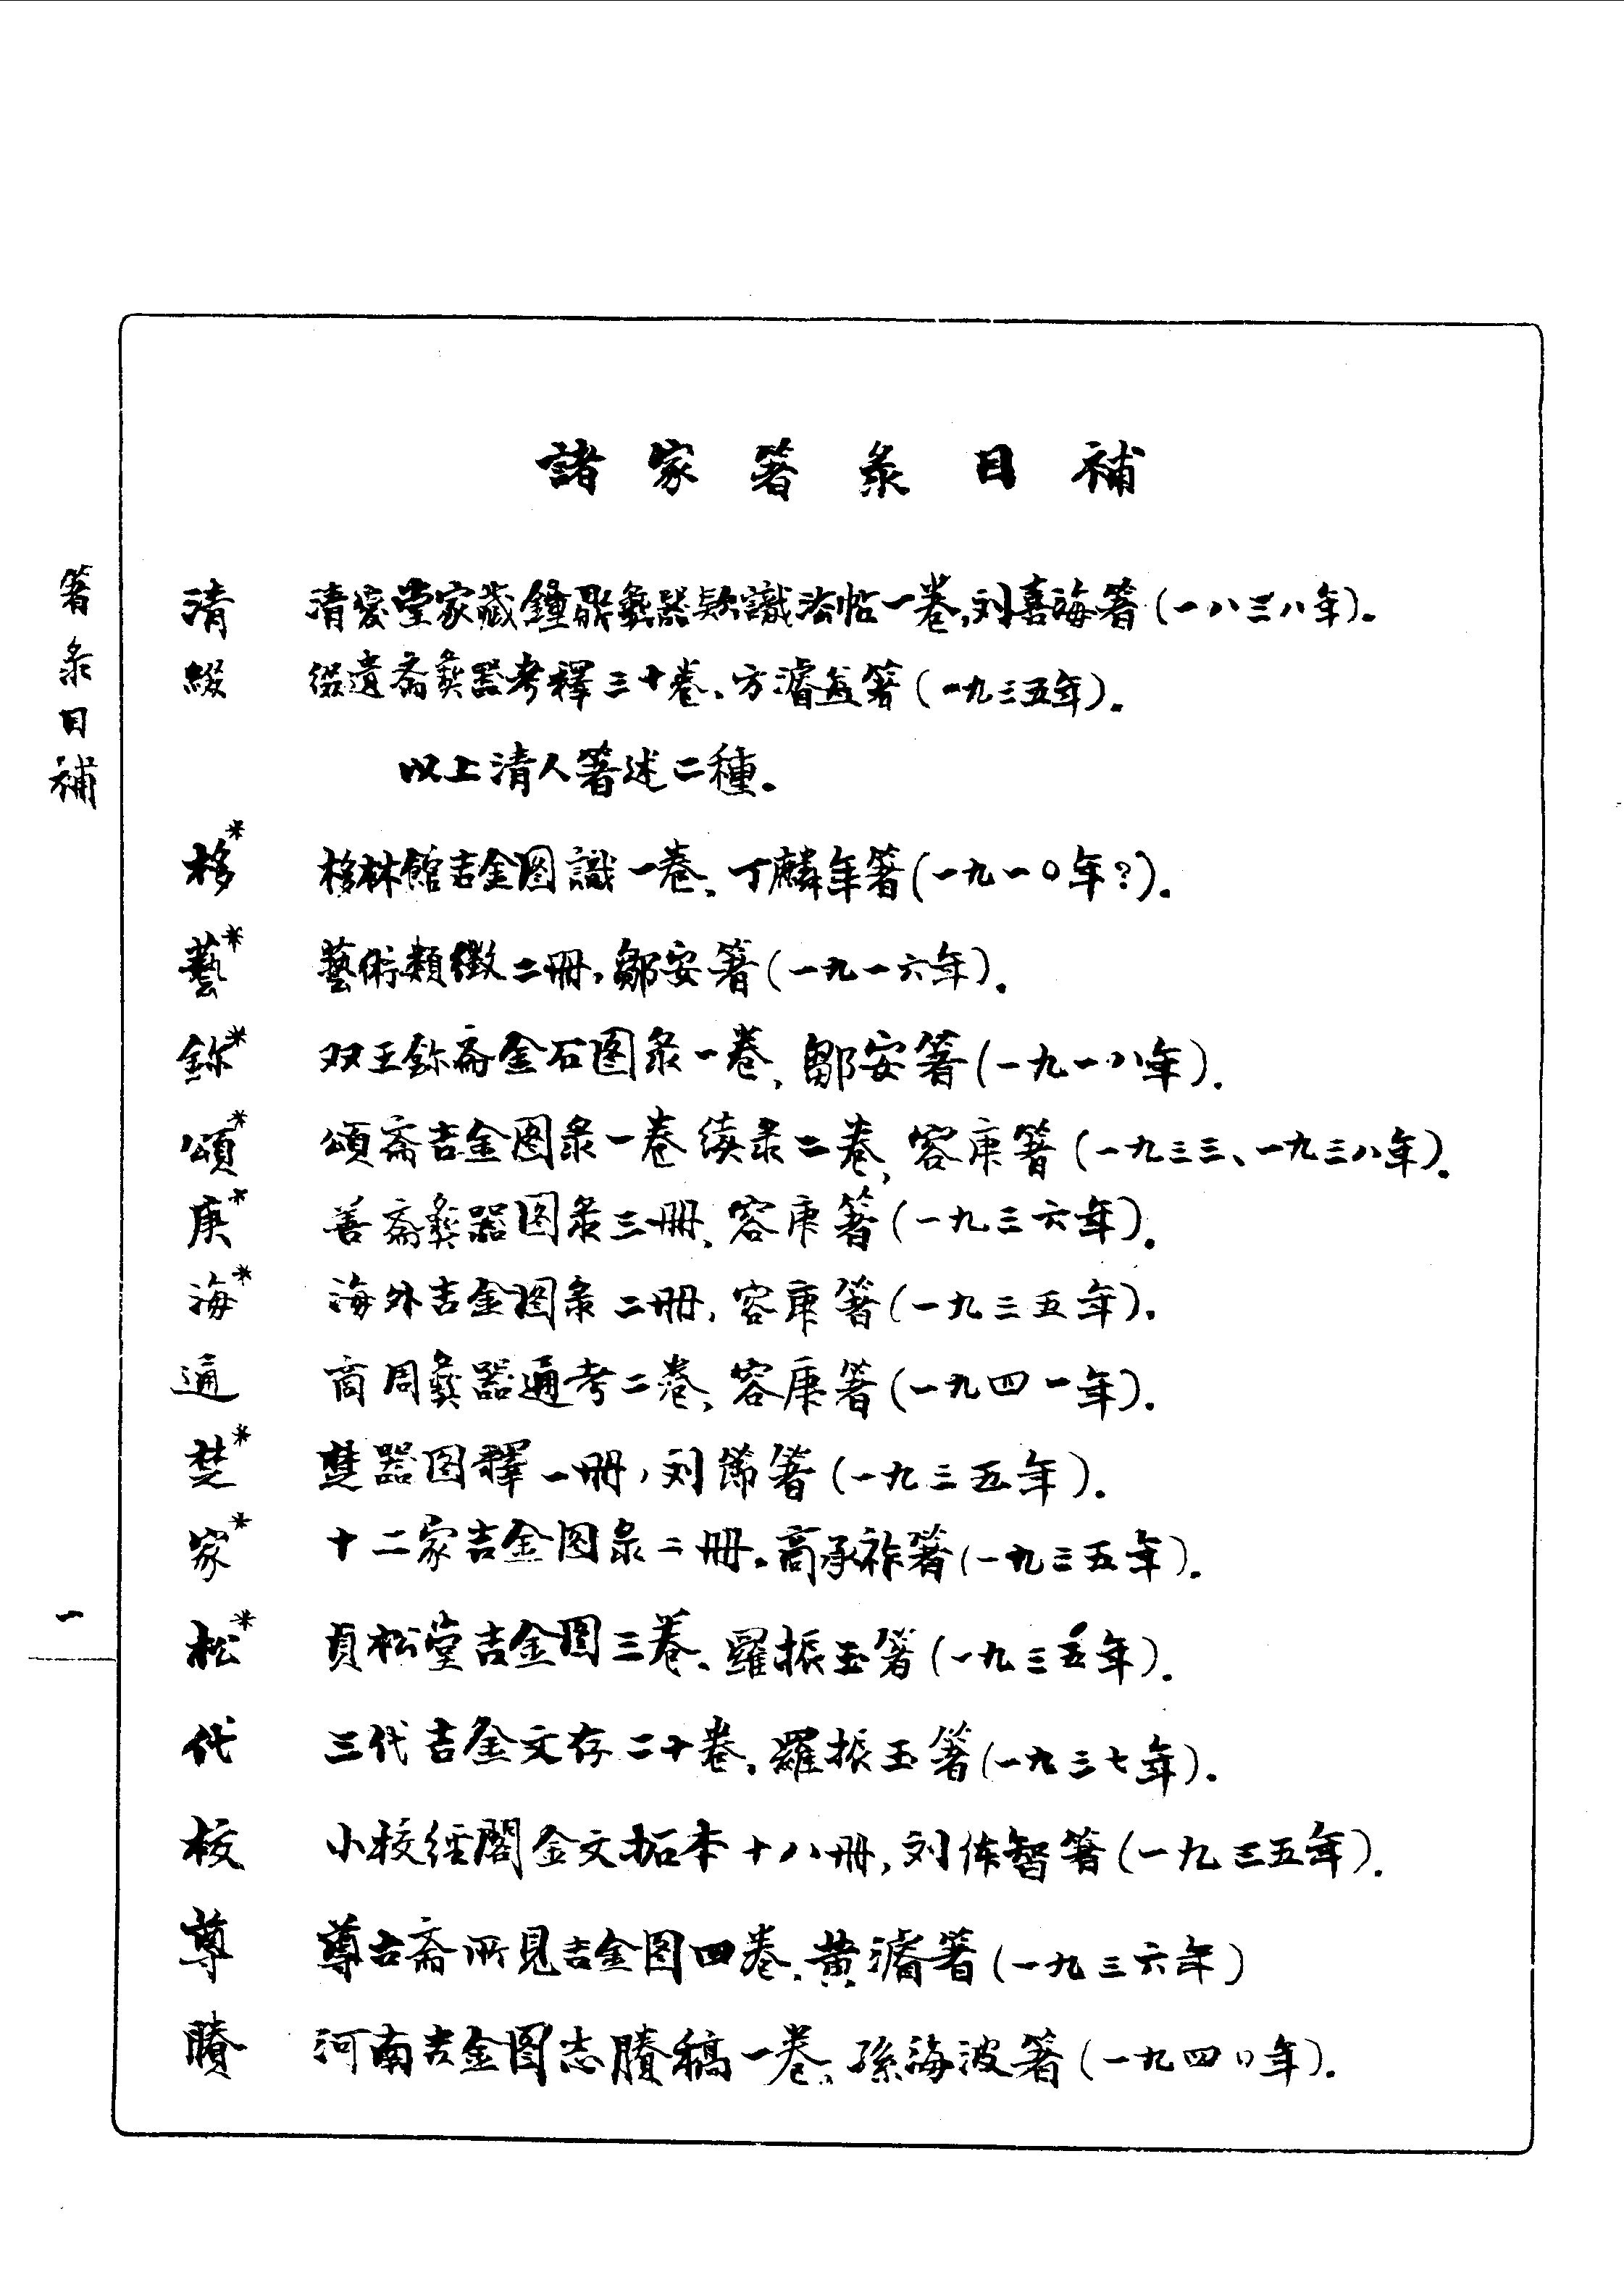 諸家箸彔目補
清 清愛堂家藏鐘鼎彝器欵識法帖一卷,刘喜海箸(一八三八年).
綴 綴遺斋彝器考釋三十卷、方濬益箸(一九三五年).
以上清人箸述二種.
移* 移林館吉金图識一卷、丁麟年箸(一九一〇年?).
藝* 藝術類徵二冊,鄒安箸(一九一六年).
鉨* 双王鉨斋金石图彔一卷,鄒安箸(一九一八年).
頌* 頌斋吉金图彔一卷续彔二卷,容庚箸(一九三三、一九三八年).
庚* 善斋彝器图彔三冊、容庚箸(一九三六年).
海* 海外吉金图彔二冊,容庚箸(一九三五年).
通 商周彝器通考二卷、容庚箸(一九四一年).
楚* 楚器图釋一冊,刘節箸(一九三五年).
家* 十二家吉金图彔二冊.商承祚箸(一九三五年).
松* 貞松堂吉金图三卷、羅振玉箸(一九三五年).
代 三代吉金文存二十卷、羅振玉箸(一九三七年).
校 小校經閣金文拓本十八冊,刘体智箸(一九三五年).
尊 尊古斋所見吉金图四卷、黄濬箸(一九三六年)
賸 河南吉金图志賸稿一卷、孫海波箸(一九四〇年).
箸彔目補
一